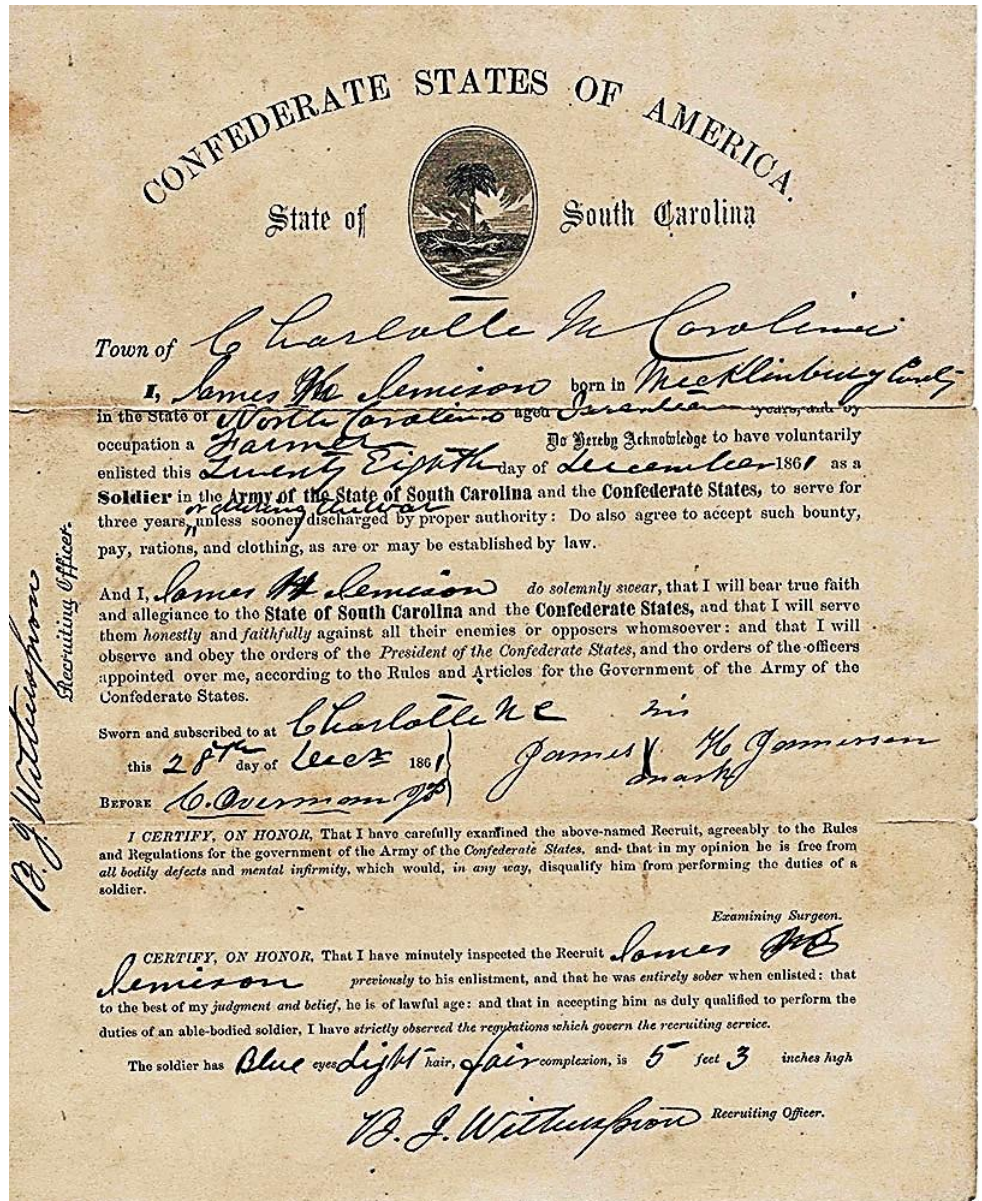 CONFEDERATE STATES OF AMERICA.
State of South Carolina
Town of Charlotte N Carolina
I, James H Jemison born in Mecklinburg County
in the State of North Carolina aged Seventeen years, and by
occupation a Farmer Do Hereby Acknowledge to have voluntarily
enlisted this Twenty Eighth day of December 1861 as a
Soldier in the Army of the State of South Carolina and the Confederate States, to serve for
or during the war
three years, unless sooner discharged by proper authority: Do also agree to accept such bounty,
pay, rations, and clothing, as are or may be established by law.
And I, James H Jemison do solemnly swear, that I will bear true faith
and allegiance to the State of South Carolina and the Confederate States, and that I will serve
them honestly and faithfully against all their enemies or opposers whomsoever: and that I will
observe and obey the orders of the President of the Confederate States, and the orders of the officers
appointed over me, according to the Rules and Articles for the Government of the Army of the
Confederate States.
Sworn and subscribed to at Charlotte N C
this 28th day of Decr 1861
BEFORE C. Overman JP
his
James X H Jamerson
mark
I CERTIFY, ON HONOR, That I have carefully examined the above-named Recruit, agreeably to the Rules
and Regulations for the government of the Army of the Confederate States, and that in my opinion he is free from
all bodily defects and mental infirmity, which would, in any way, disqualify him from performing the duties of a
soldier.
Examining Surgeon.
I CERTIFY, ON HONOR, That I have minutely inspected the Recruit James H
Jemison previously to his enlistment, and that he was entirely sober when enlisted: that
to the best of my judgment and belief, he is of lawful age: and that in accepting him as duly qualified to perform the
duties of an able-bodied soldier, I have strictly observed the regulations which govern the recruiting service.
The soldier has Blue eyes Light hair, fair complexion, is 5 feet 3 inches high
B. J. Witherspoon Recruiting Officer.
B. J. Witherspoon
Recruiting Officer.